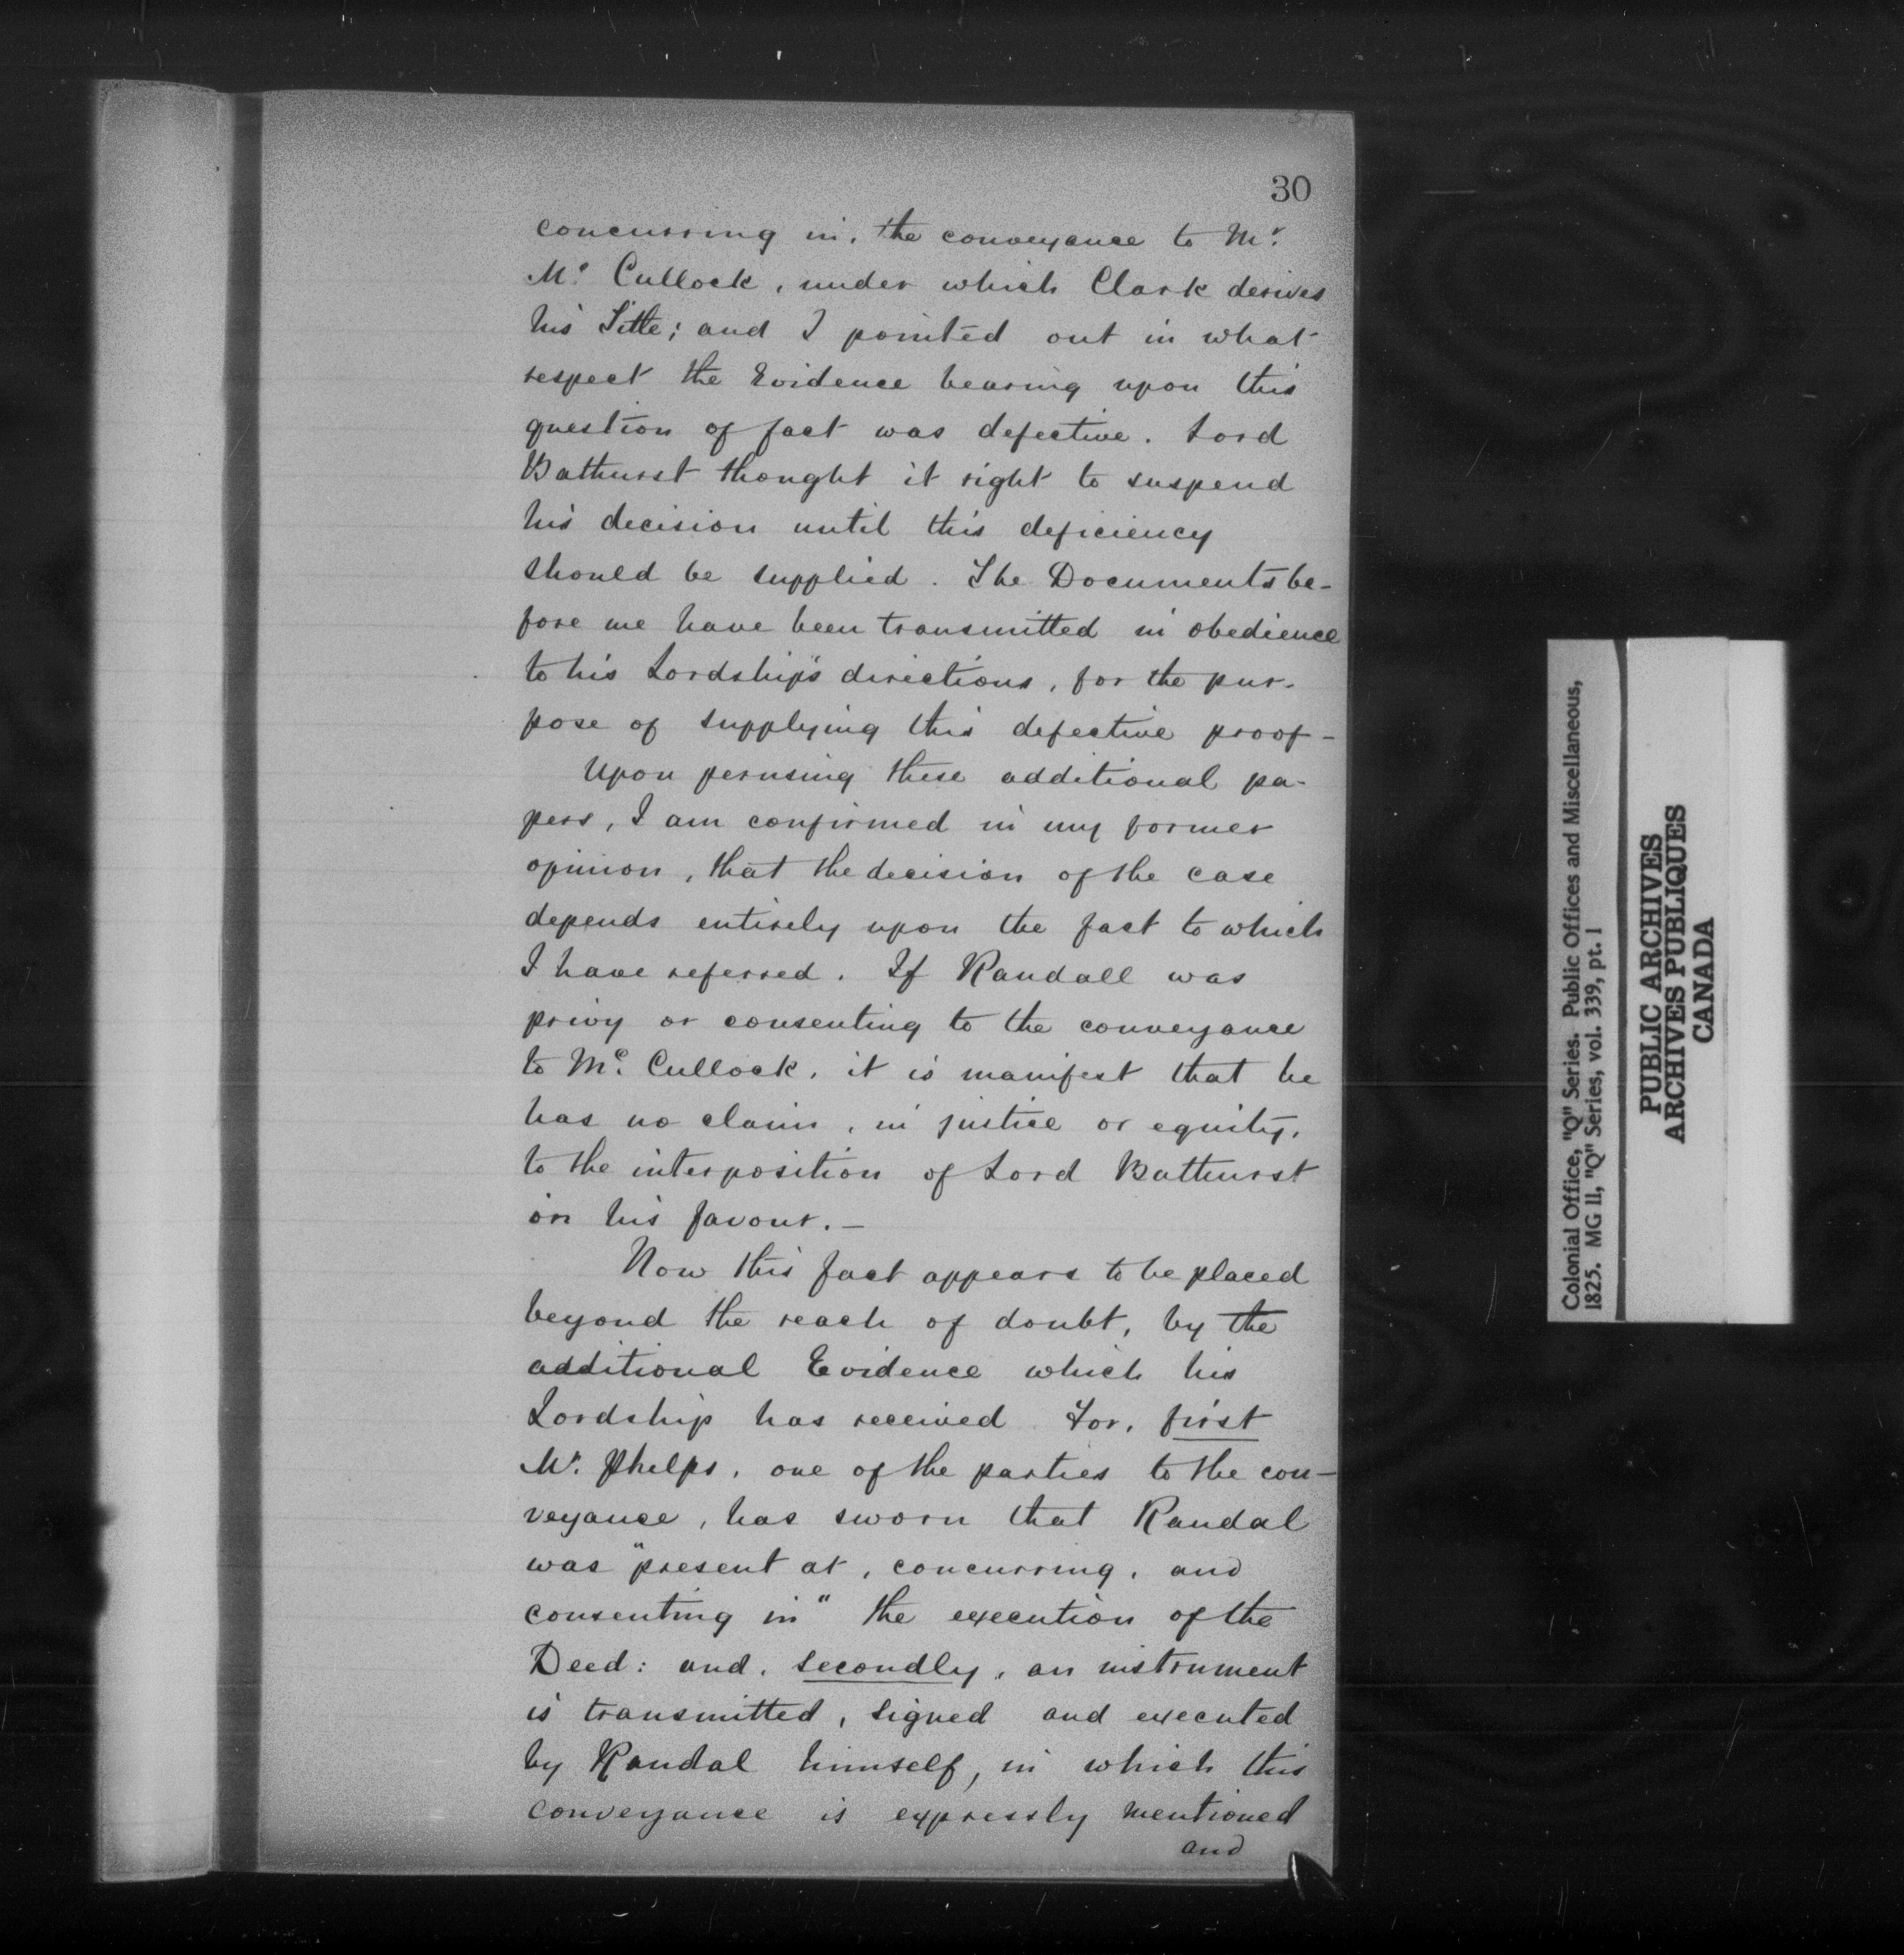 30
concurring in, the conveyance to Mr.
Mc. Cullock, under which Clark derives
his Title; and I pointed out in what
respect the Evidence bearing upon this
question of fact was defective. Lord
Bathurst thought it right to suspend
his decision until this deficiency
should be supplied. The Documents be-
fore me have been transmitted in obedience
to his Lordship's directions, for the pur-
pose of supplying this defective proof -
Upon perusing these additional pa-
pers, I am confirmed in my former
opinion, that the decision of the case
depends entirely upon the fact to which
I have referred. If Randall was
privy or consenting to the conveyance
to Mc. Cullock, it is manifest that he
has no claim, in justice or equity,
to the interposition of Lord Bathurst
in his favour. -
Now this fact appears to be placed
beyond the reach of doubt, by the
additional Evidence which his
Lordship has received. For, first
Mr. Phelps, one of the parties to the con-
veyance, has sworn that Randal
was "present at, concurring, and
consenting in" the execution of the
Deed: and, secondly, an instrument
is transmitted, signed and executed
by Randal himself, in which this
conveyance is expressly mentioned
and
Colonial Office, "Q" Series. Public Offices and Miscellaneous,
1825. MG 11, "Q" Series, vol. 339, pt. 1
PUBLIC ARCHIVES
ARCHIVES PUBLIQUES
CANADA